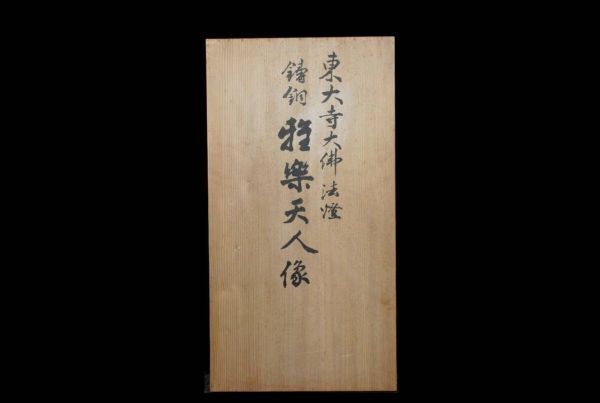 東大寺大佛法燈
鑄銅 雅樂天人像